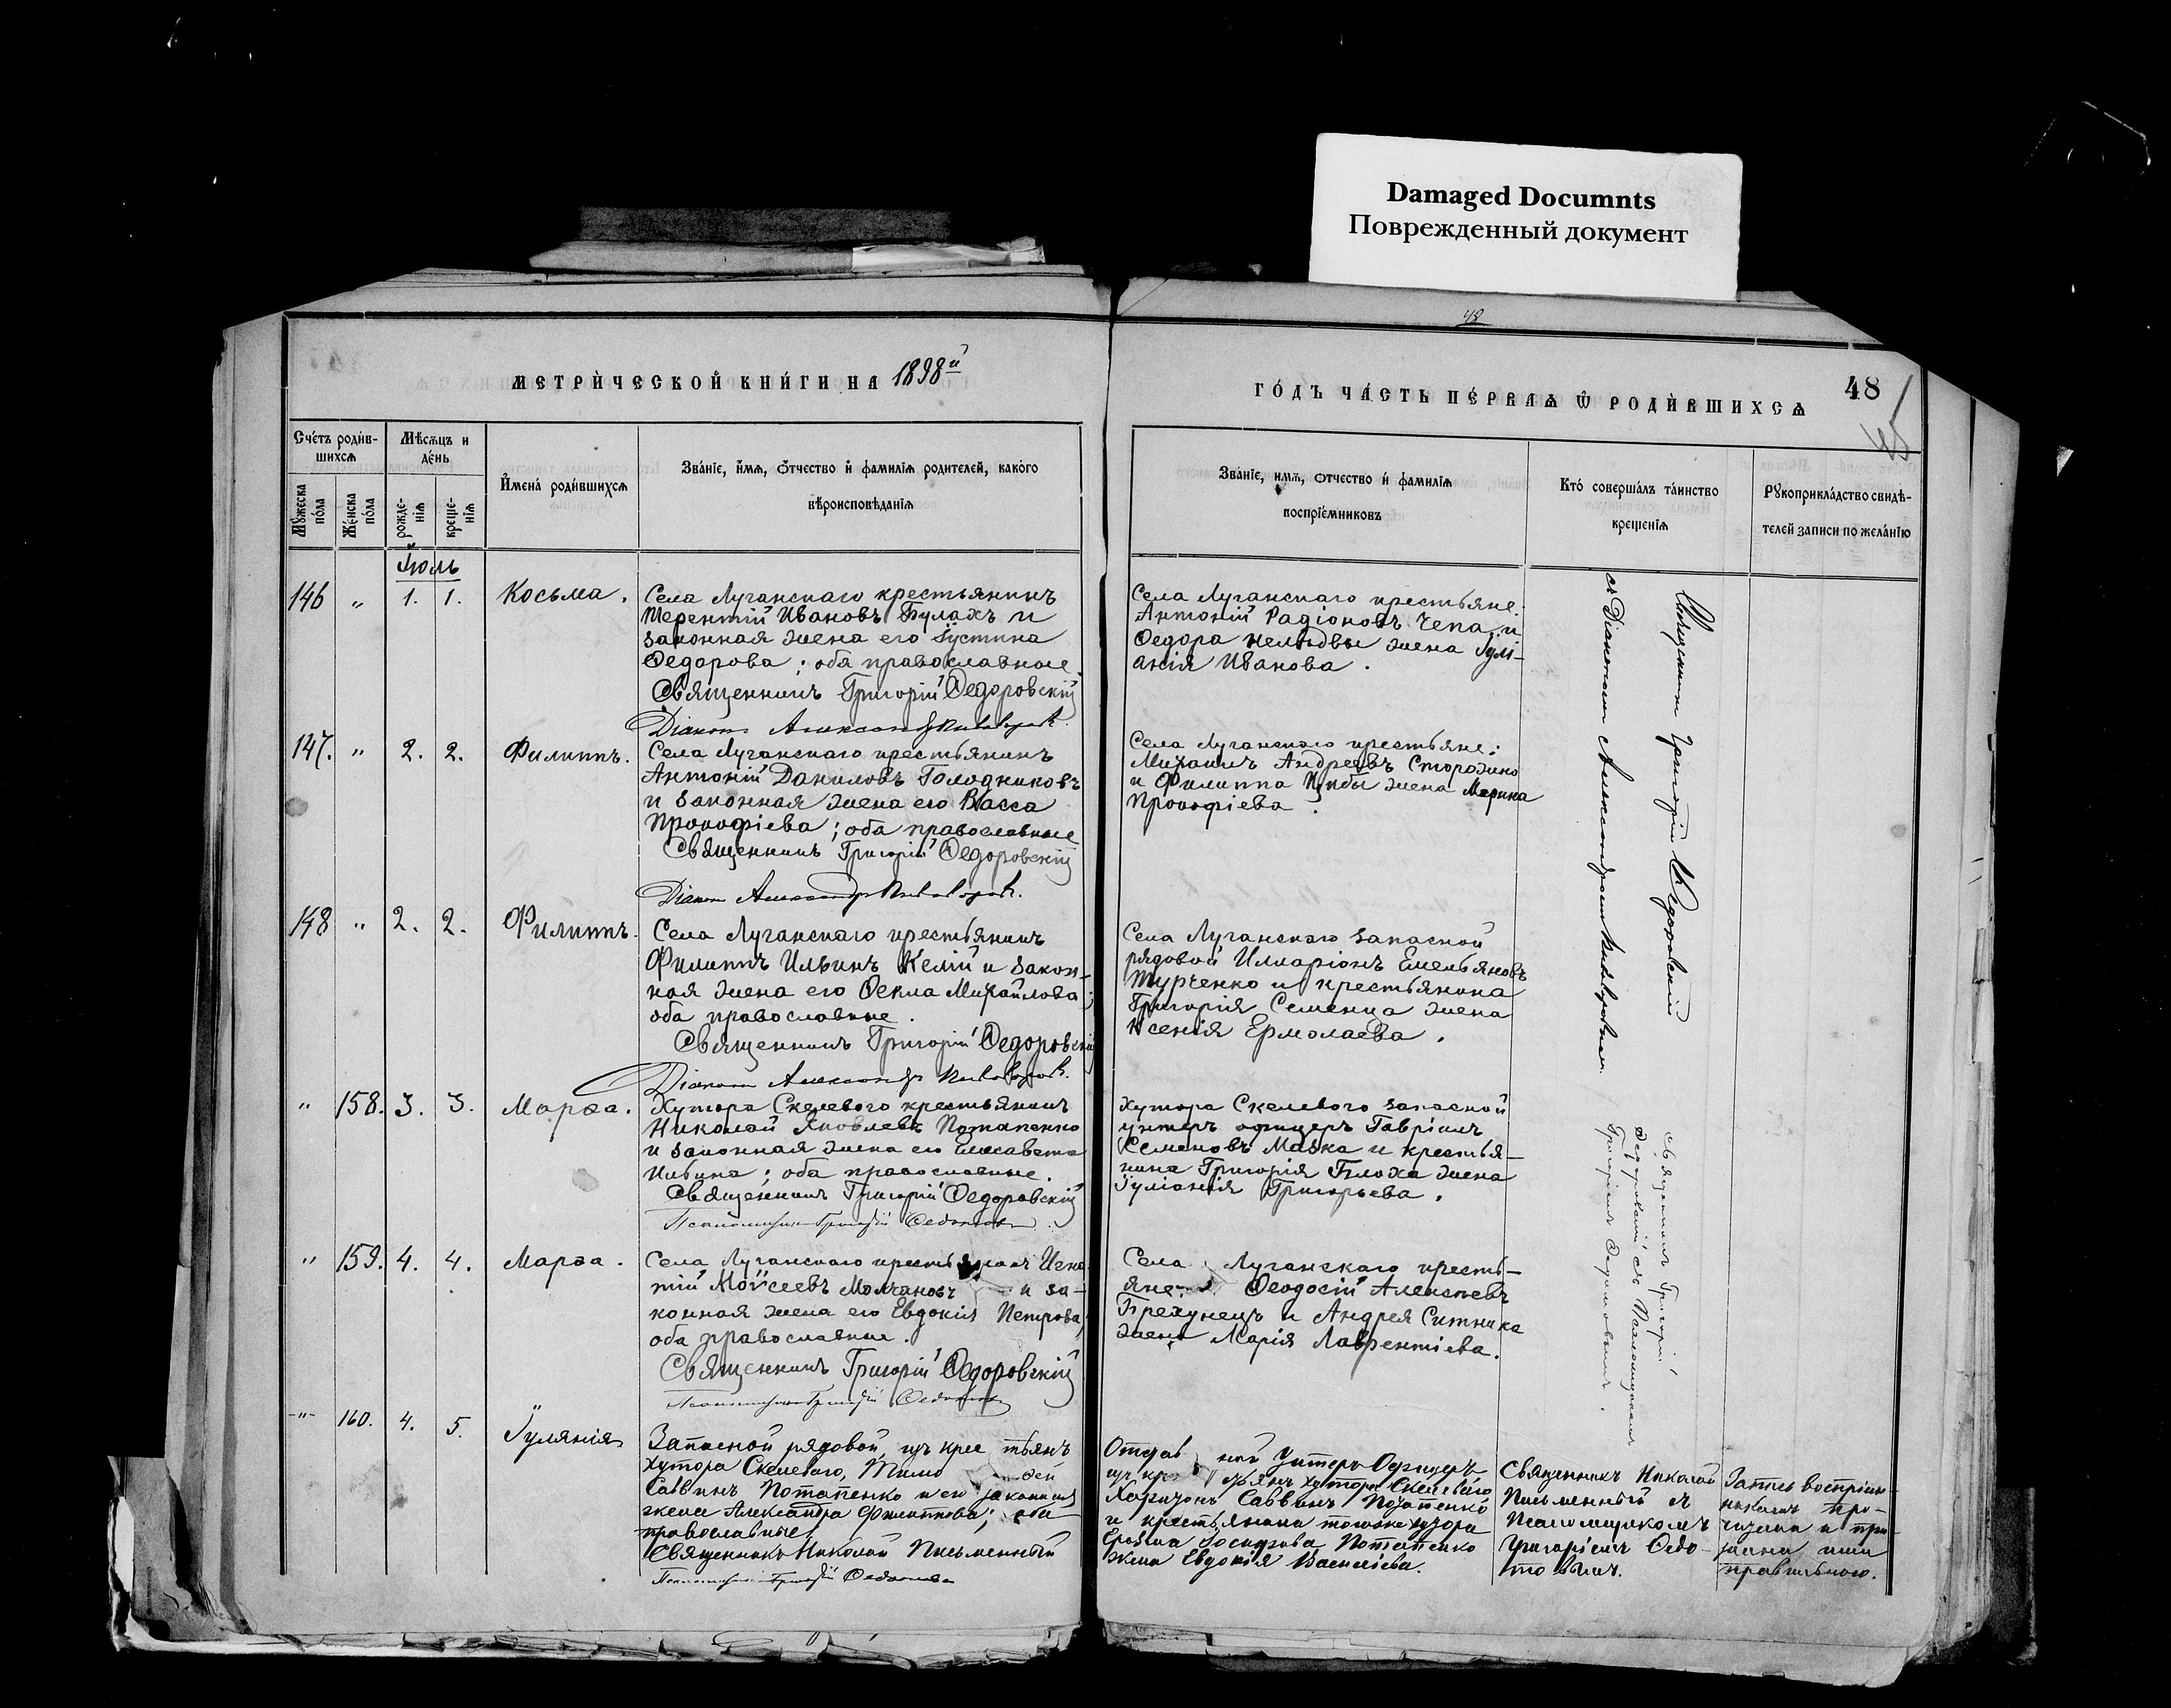 Damaged Documnts
Поврежденный документ
48
МЕТРИЧЕСКОЙ КНИГИ НА 1898й
ГОДЪ ЧАСТЬ ПЕРВАЯ Ѡ РОДИВШИХСЯ
48
Счетъ родив-
шихся
Мѣсяцъ и
день
Имена родившихся
Званіе, имя, отчество и фамилія родителей, какого
вѣроисповѣданія
Мужеска
пола
Женска
пола
рожде-
нія
креще-
нія
Званіе, имя, отчество и фамилія
воспріемниковъ
Кто совершалъ таинство
крещенія
Рукоприкладство свидѣ-
телей записи по желанію
Іюль
146 " 1. 1. Косьма.
Села Луганскаго крестьянинъ
Терентій Ивановъ Булахъ и
законная жена его Іустина
Ѳедорова; оба православные
Священникъ Григорій Ѳедоровскій
Діаконъ Александръ
Села Луганскаго крестьяне:
Антоній Радіоновъ Чепа и
Ѳедора жена Іулі-
анія Иванова.
147. " 2. 2. Филиппъ.
Села Луганскаго крестьянинъ
Антоній Даниловъ Голодниковъ
и законная жена его Васса
Прокофіева; оба православные
Священникъ Григорій Ѳедоровскій
Діаконъ Александръ
Села Луганскаго крестьяне:
Михаилъ Андреевъ Сторожко
и Филиппа жена Марина
Прокофіева.
148 " 2. 2. Филиппъ.
Села Луганскаго крестьянинъ
Филиппъ Ильинъ Келій и закон-
ная жена его Ѳекла Михайлова;
оба православные.
Священникъ Григорій Ѳедоровскій
Діаконъ Александръ
Села Луганскаго запасной
рядовой Иларіонъ Емельяновъ
Турченко и крестьянина
Григорія Семенца жена
Ксенія Ермолаева.
Священникъ Григорій Ѳедоровскій
съ Діакономъ Александромъ
" 158. 3. 3. Марѳа.
Хутора Скелеваго крестьянинъ
Николай Яковлевъ Потапенко
и законная жена его Елисавета
Ильина; оба православные.
Священникъ Григорій Ѳедоровскій
Псаломщикъ Григорій Ѳедотовъ
Хутора Скелеваго запасной
унтеръ офицеръ Гавріилъ
Семеновъ Мазка и крестья-
нина Григорія Блоха жена
Іуліанія Григорьева.
" 159. 4. 4. Марѳа.
Села Луганскаго крестьянинъ Игна
тій Мойсеевъ Молчановъ и за-
конная жена его Евдокія Петрова;
оба православные.
Священникъ Григорій Ѳедоровскій
Псаломщикъ Григорій Ѳедотовъ
Села Луганскаго кресть-
яне: Ѳеодосій Алексѣевъ
Брехунецъ и Андрея Ситника
жена Марія Лаврентіева.
Священникъ Григорій
Ѳедоровскій съ Псаломщикомъ
Григоріемъ Ѳедотовымъ.
-"- 160. 4. 5. Іулянія
Запасной рядовой, изъ крес тьянъ
хутора Скелеваго, Тимо ѳей
Саввинъ Потапенко и его законная
жена Александра Филиппова; оба
православные
Священникъ Николай Письменный
Псаломщикъ Григорій Ѳедотовъ
Отстав ной Унтеръ-Офицеръ
изъ кр тьянъ хутора Скелеваго
Харитонъ Саввинъ Потапенко
и крестьянина тогоже хутора
Іосифова Потапенко
жена Евдокія Василіева.
Священникъ Николай
Письменный съ
Псаломщикомъ
Григоріемъ Ѳедо-
товымъ.
Запись воспріем-
никамъ про-
читана и при-
знана ими
правильною.